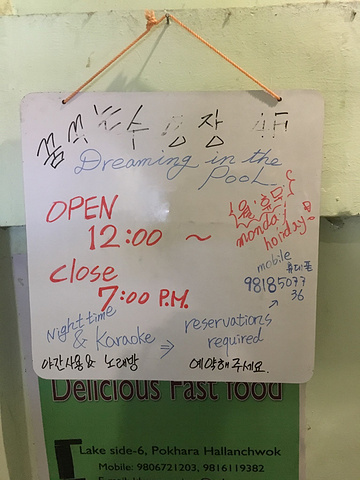 꿈 수영장
Dreaming in the
Pool
OPEN
12:00 ~
월 휴무
monday
hoilday
Close
7:00 P.M.
mobile
휴대폰
98185077
36
Night time
& Karaoke ⇒
reservations
required
야간사용 & 노래방
예약해 주세요.
Delicious Fast food
Lake side-6, Pokhara Hallanchwok
Mobile: 9806721203, 9816119382